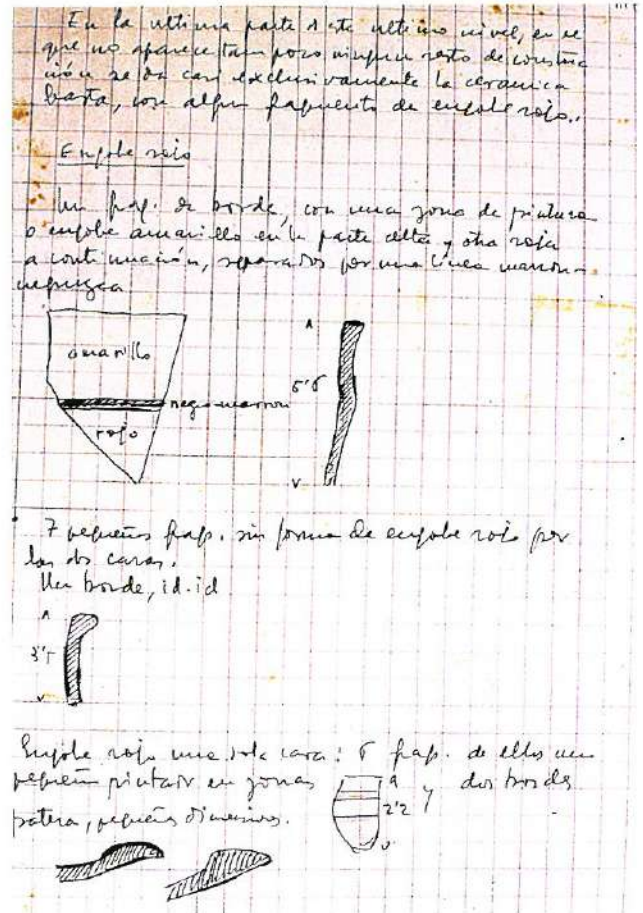 En la ultima parte de este ultimo nivel, en el
que no aparece tampoco ningun resto de construc
ción se da casi exclusivamente la ceramica
basta, con algun fragmento de engobe rojo.
Engobe rojo
Un frag. de borde, con una zona de pintura
o engobe amarillo en la parte alta y otra roja
a continuación, separados por una linea marron-
negruzca
amarillo
negro-marron
rojo
7 pequeños frag. sin forma de engobe rojo por
las dos caras.
Un borde, id. id
Engobe rojo una sola cara: 5 frag. de ellos uno
pequeño pintado en zonas
2'2
y dos bordes
patera, pequeñas dimensiones.